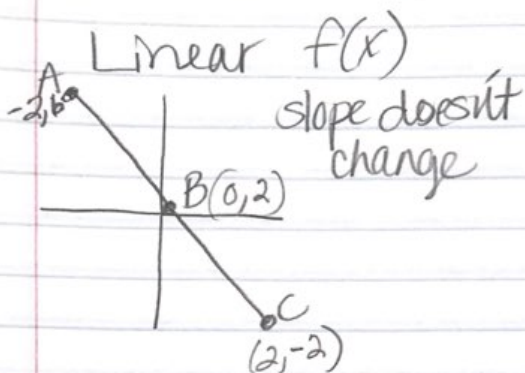 Linear f(x)
slope doesn't
change
A
-2,6
B(0,2)
C
(2,-2)